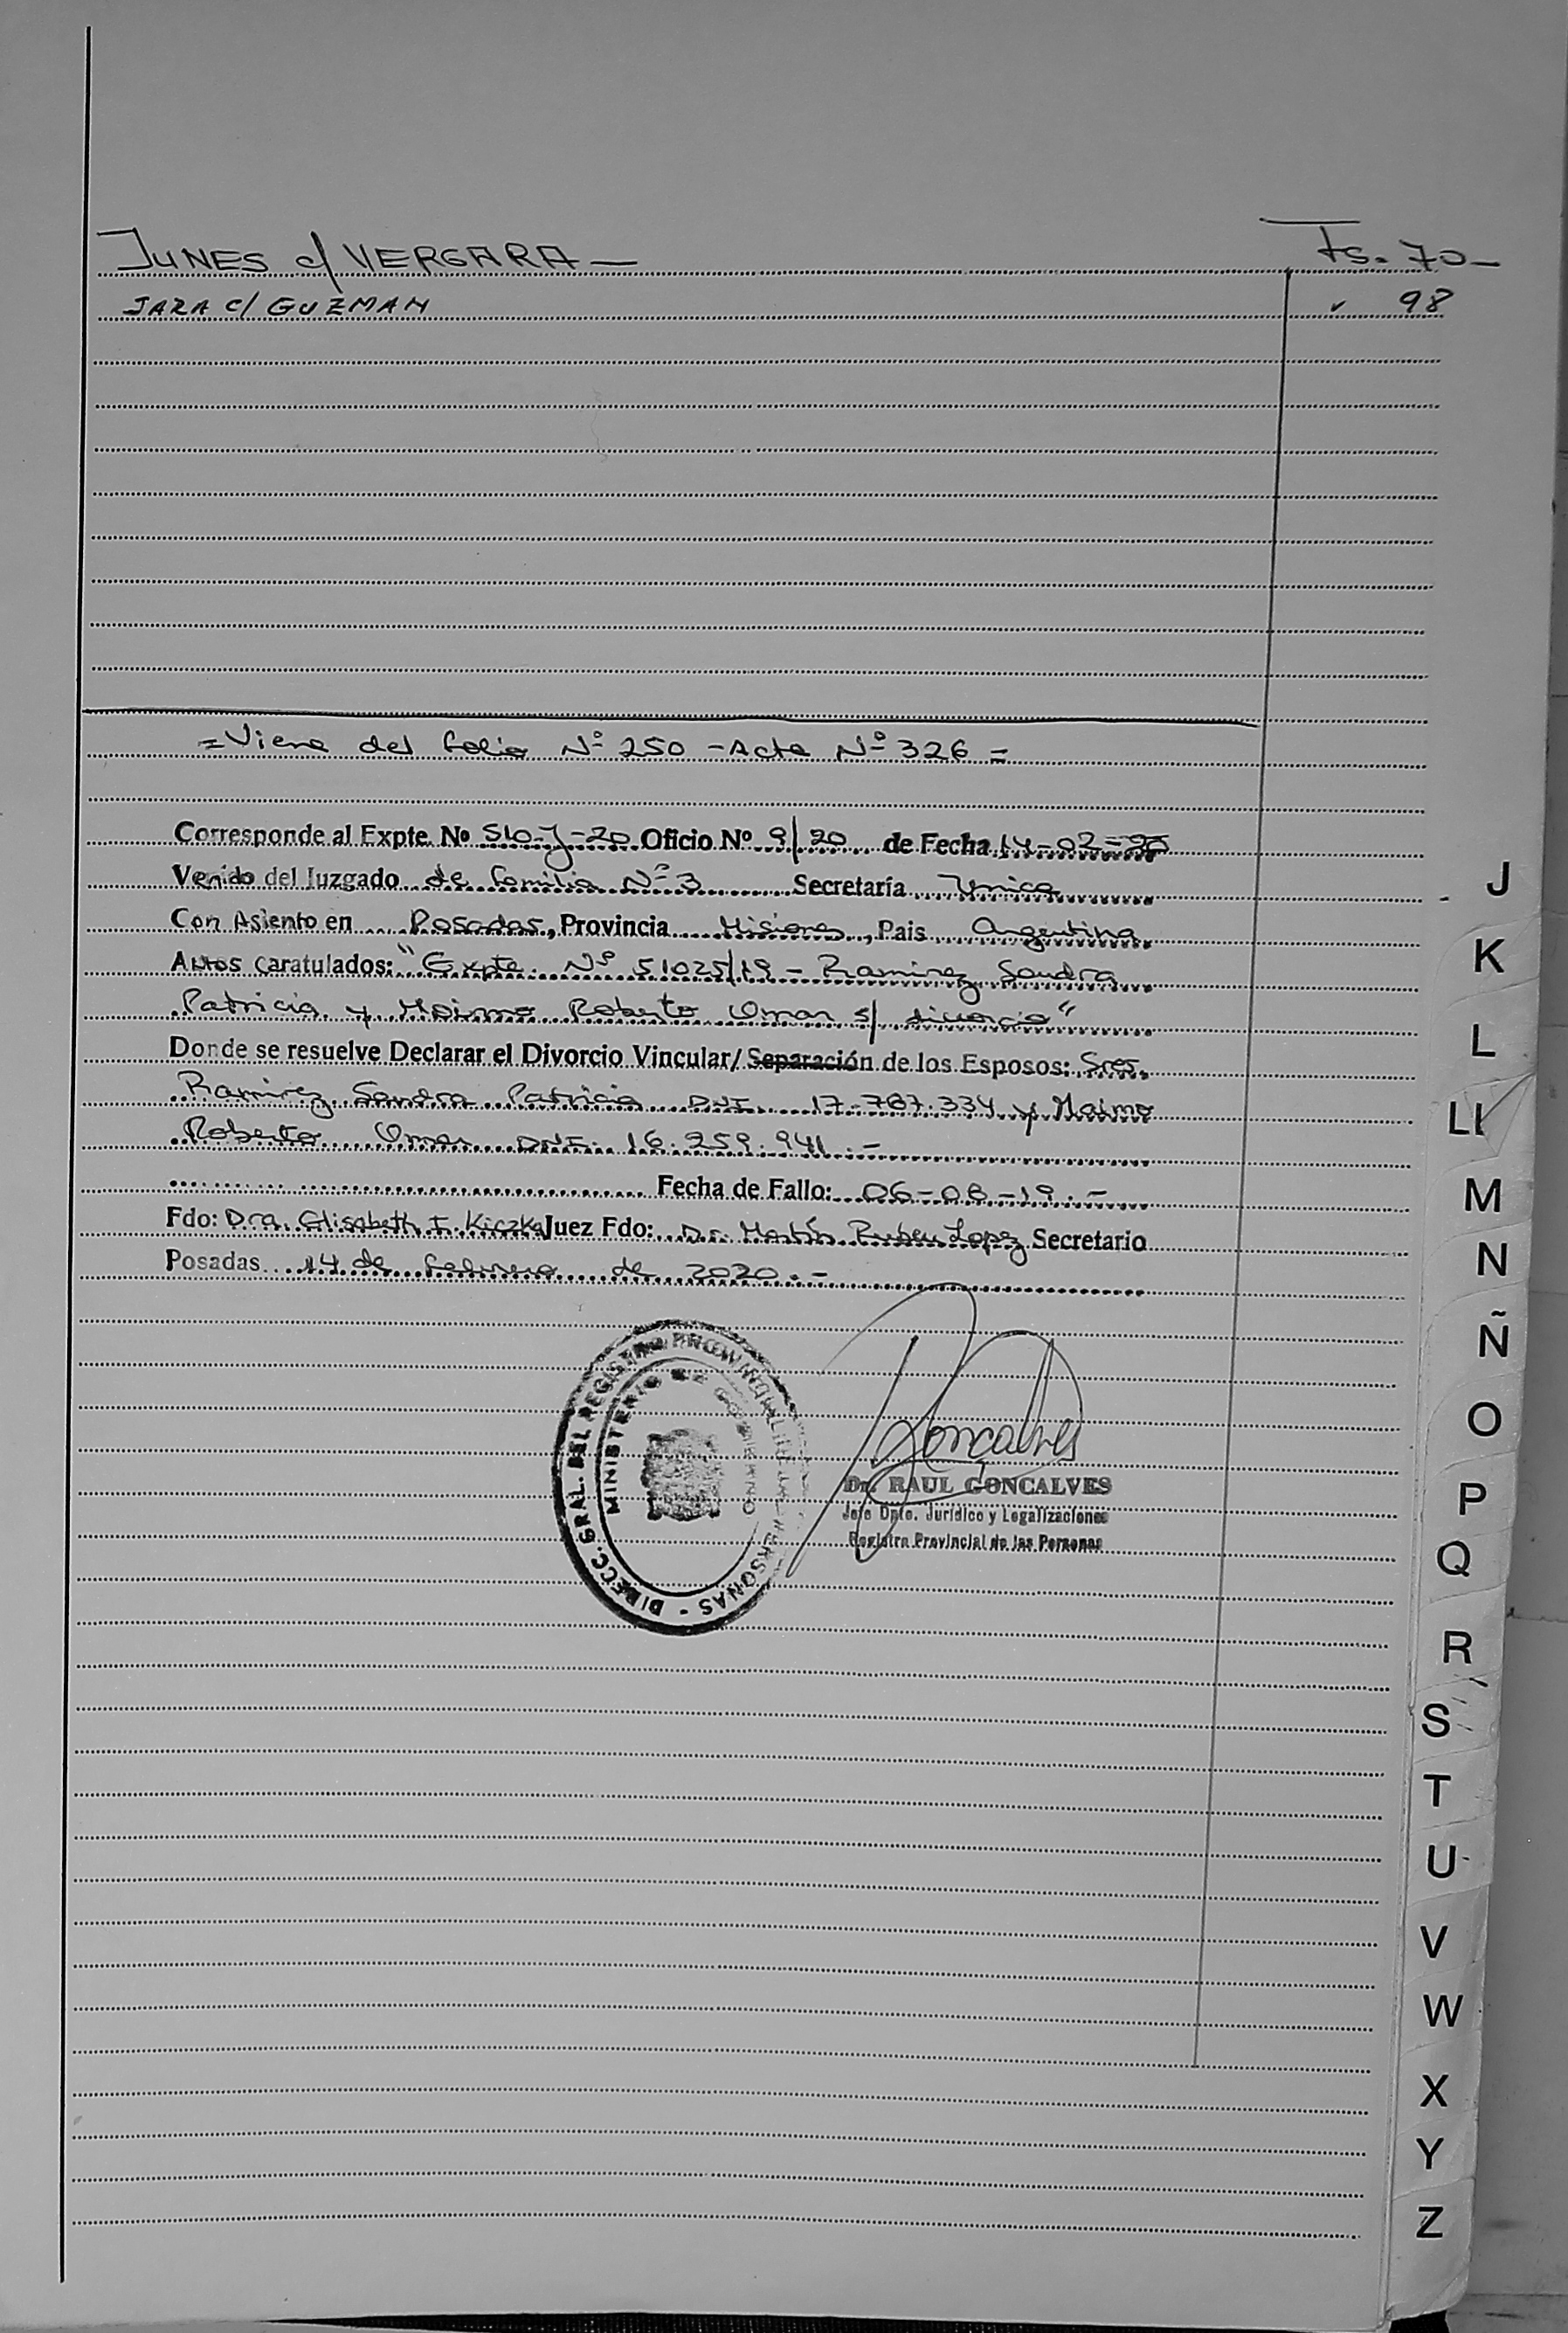 JUNES c/ VERGARA — Fs. 70 —
JARA c/ GUZMAN ✓ 98
= Viene del folio Nº 250 - Acta Nº 326 =
Corresponde al Expte. Nº 510-J-20 Oficio Nº 9/20 de Fecha 14-02-20
Venido del Juzgado de Familia Nº 3 Secretaría Unica
Con Asiento en Posadas, Provincia Misiones, Pais Argentina
Autos caratulados: "Expte. Nº 51025/19 - Ramirez Sandra
Patricia y Maimo Roberto Omar s/ divorcio"
Donde se resuelve Declarar el Divorcio Vincular/ Separación de los Esposos: Sres.
Ramirez Sandra Patricia DNI. 17.787.334 y Maimo
Roberto Omar DNI. 16.259.941.-
Fecha de Fallo: 06-08-19.-
Fdo: Dra. Elisabeth I. Kiczka Juez Fdo: Dr. Martín Ruben Lopez Secretario
Posadas 14 de febrero de 2020.-
DIRECC. GRAL. DEL REGISTRO PROVINCIAL DE LAS PERSONAS -
MINISTERIO DE GOBIERNO
Goncalves
Dr. RAUL GONCALVES
Jefe Dpto. Jurídico y Legalizaciones
Registro Provincial de las Personas
J
K
L
LL
M
N
Ñ
O
P
Q
R
S
T
U
V
W
X
Y
Z